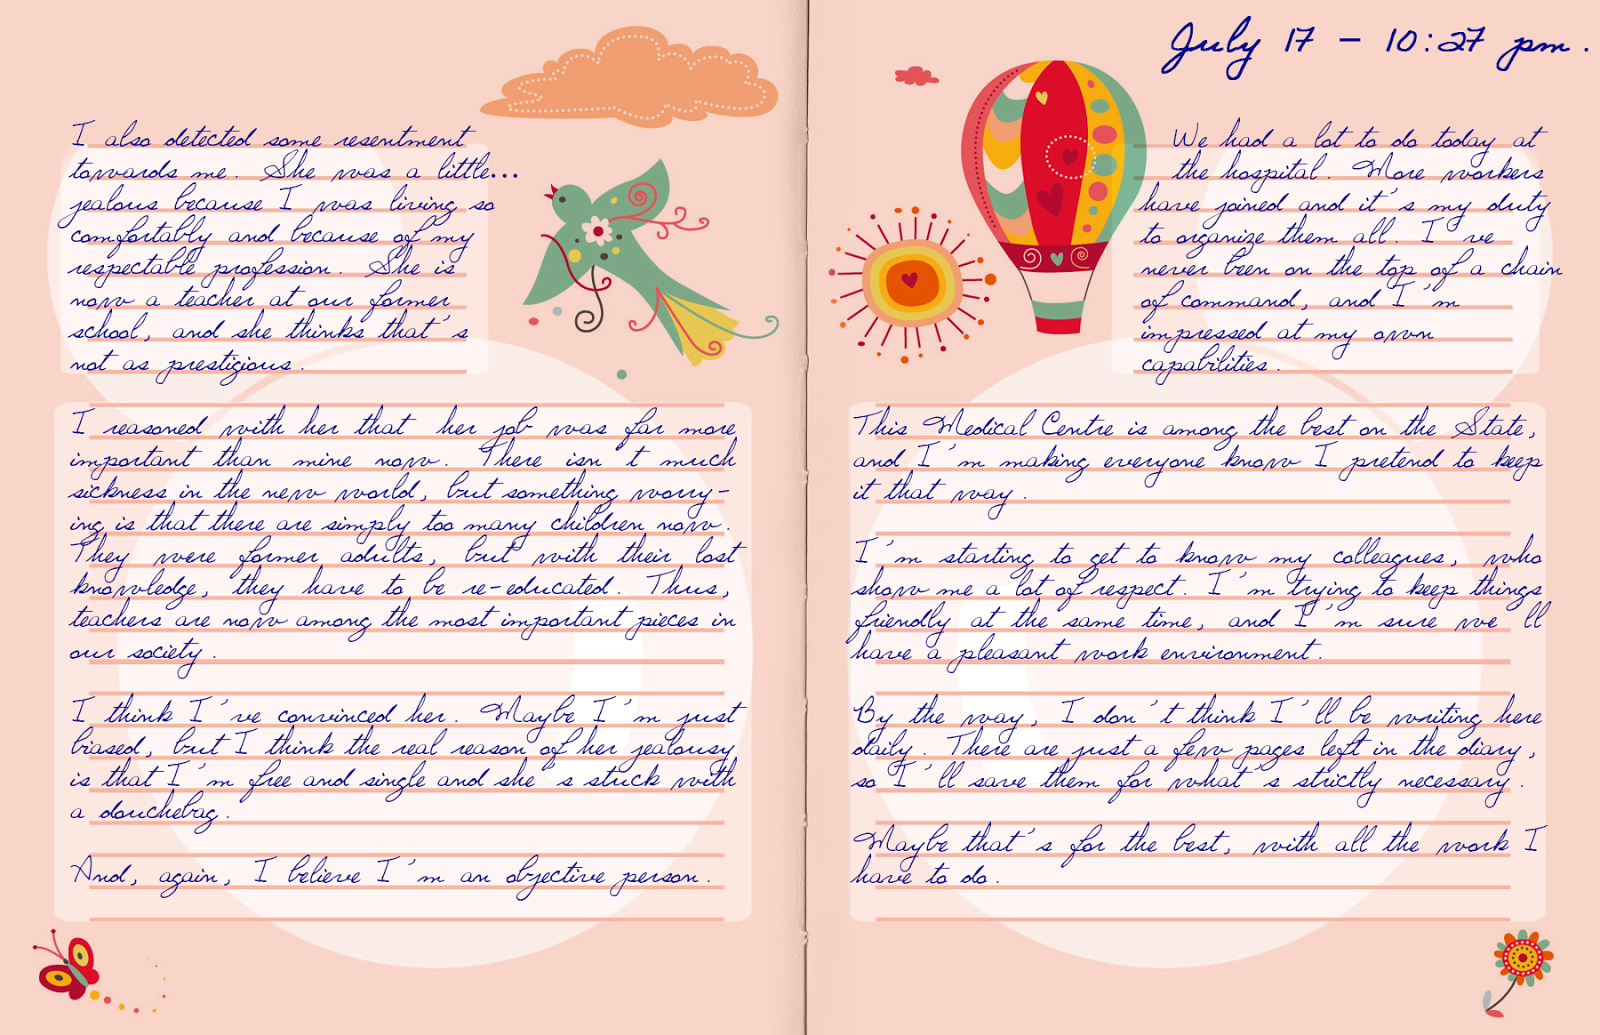 I also detected some resentment
towards me. She was a little...
jealous because I was living so
comfortably and because of my
respectable profession. She is
now a teacher at our former
school, and she thinks that's
not as prestigious.
I reasoned with her that her job was far more
important than mine now. There isn't much
sickness in the new world, but something worry-
ing is that there are simply too many children now.
They were former adults, but with their lost
knowledge, they have to be re-educated. Thus,
teachers are now among the most important pieces in
our society.
I think I've convinced her. Maybe I'm just
biased, but I think the real reason of her jealousy
is that I'm free and single and she's stuck with
a douchebag.
And, again, I believe I'm an objective person.
July 17 - 10:27 pm.
We had a lot to do today at
the hospital. More workers
have joined and it's my duty
to organize them all. I've
never been on the top of a chain
of command, and I'm
impressed at my own
capabilities.
This Medical Centre is among the best on the State,
and I'm making everyone know I pretend to keep
it that way.
I'm starting to get to know my colleagues, who
show me a lot of respect. I'm trying to keep things
friendly at the same time, and I'm sure we'll
have a pleasant work environment.
By the way, I don't think I'll be writing here
daily. There are just a few pages left in the diary,
so I'll save them for what's strictly necessary.
Maybe that's for the best, with all the work I
have to do.